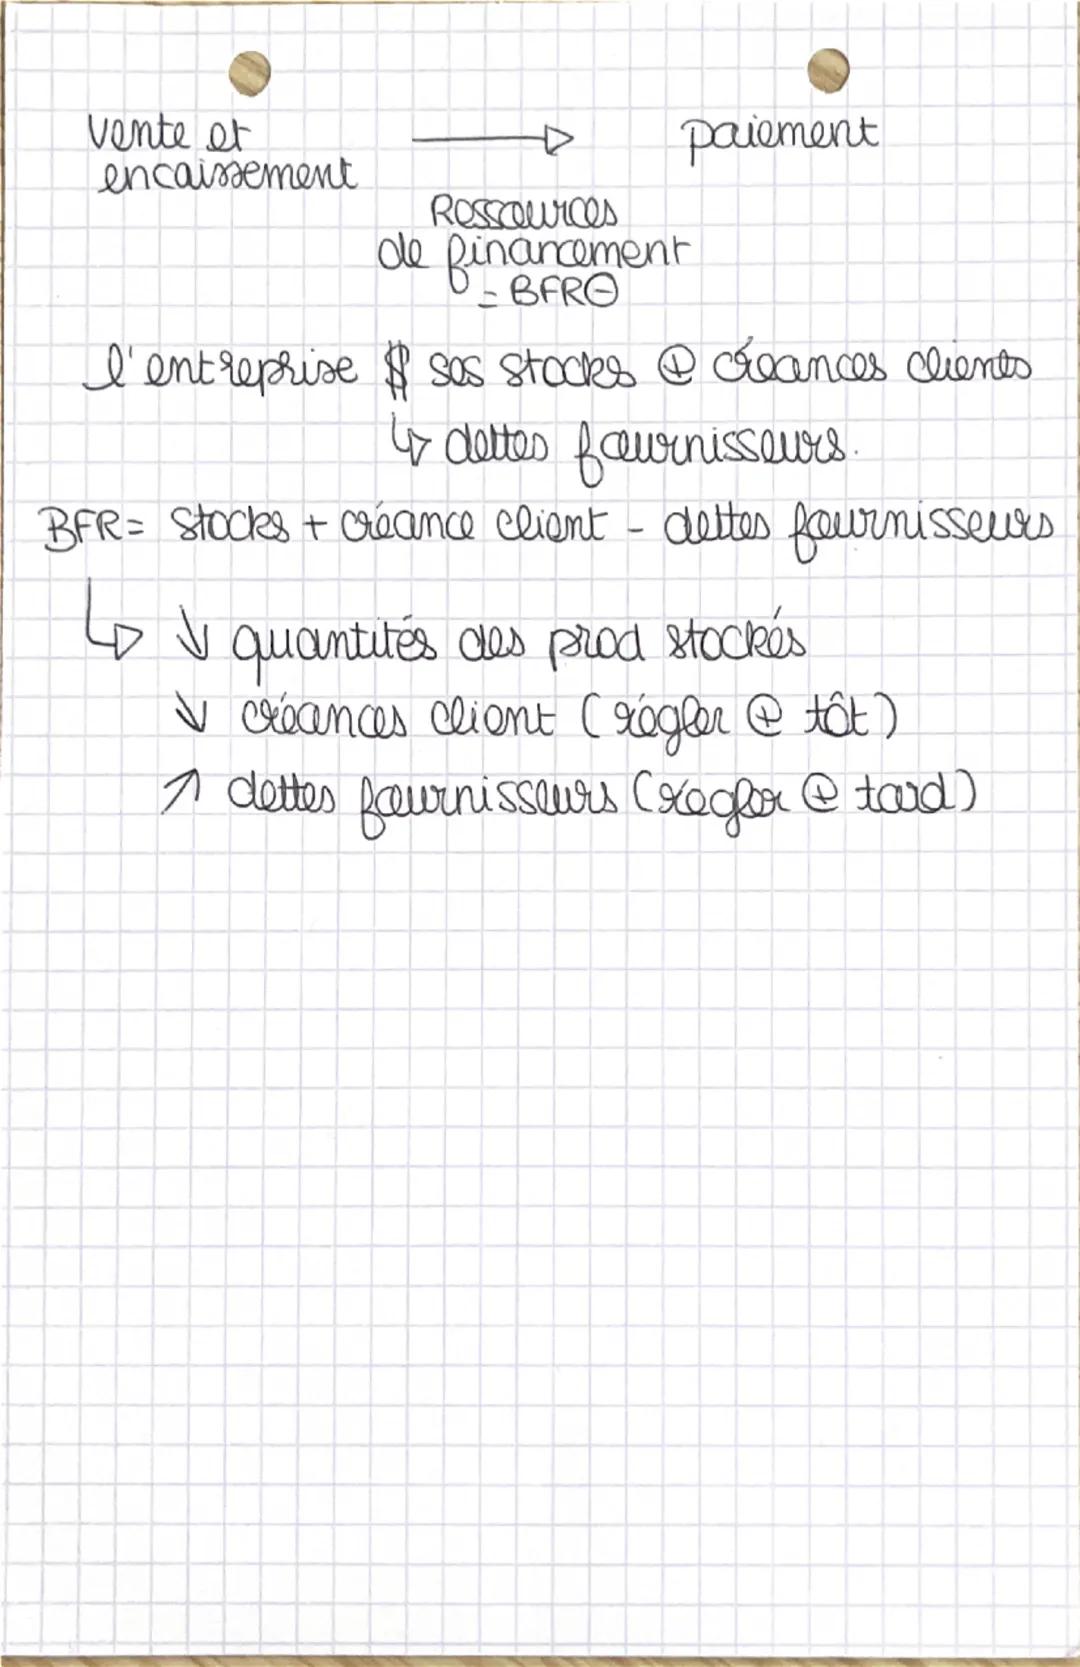 vente et → paiement
encaissement
Ressources
de financement
= BFR⊖
l'entreprise $ ses stocks ⊕ créances clients
↳ dettes fournisseurs.
BFR = stocks + créance client - dettes fournisseurs
↳ ↓ quantités des prod stockés
↓ créances client (régler ⊕ tôt)
↗ dettes fournisseurs (régler ⊕ tard)